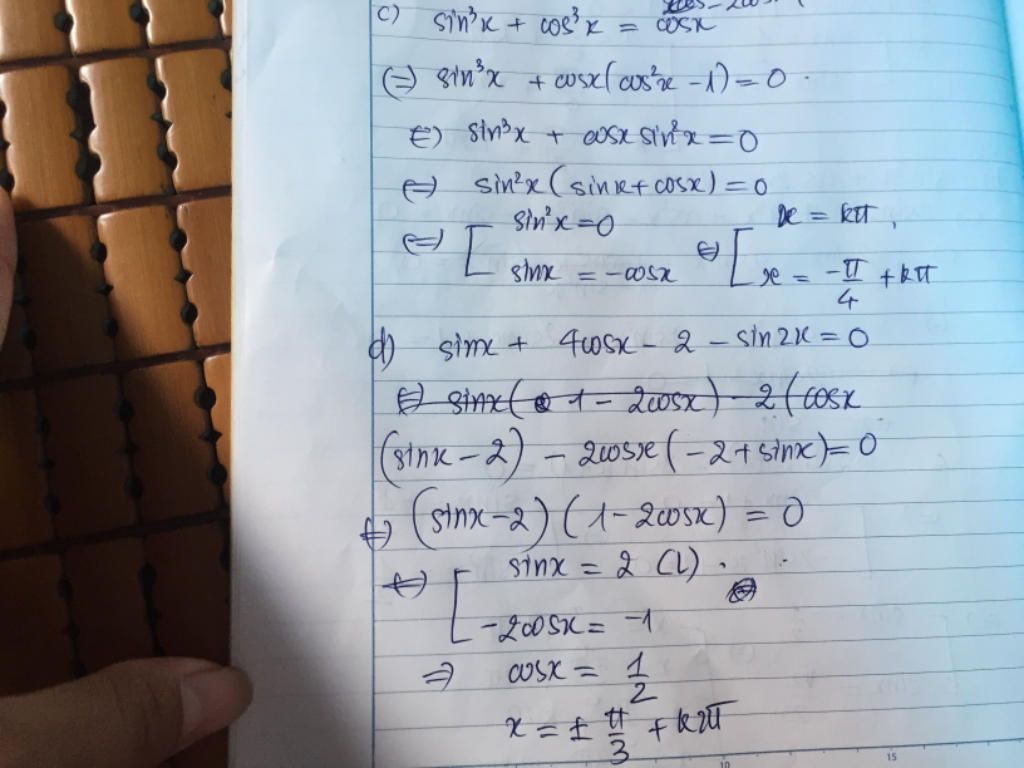 c) sin³x + cos³x = cosx
(=) sin³x + cosx(cos²x - 1) = 0.
(=) sin³x + cosx sin²x = 0
(=) sin²x (sinx + cosx) = 0
(=) [ sin²x = 0 (=) [ x = kπ,
sinx = -cosx x = -π/4 + kπ
d) sinx + 4cosx - 2 - sin2x = 0
(=) sinx( 1 - 2cosx) - 2(cosx
(sinx - 2) - 2cosx(-2 + sinx) = 0
(=) (sinx - 2)(1 - 2cosx) = 0
(=) [ sinx = 2 (L).
-2cosx = -1
=) cosx = 1/2
x = ± π/3 + k2π
10 15